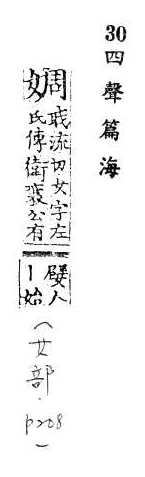 30四聲篇海
婤
職流切女字左
氏傳衛襄公有
嬖人
丨姶
(女部.p208)